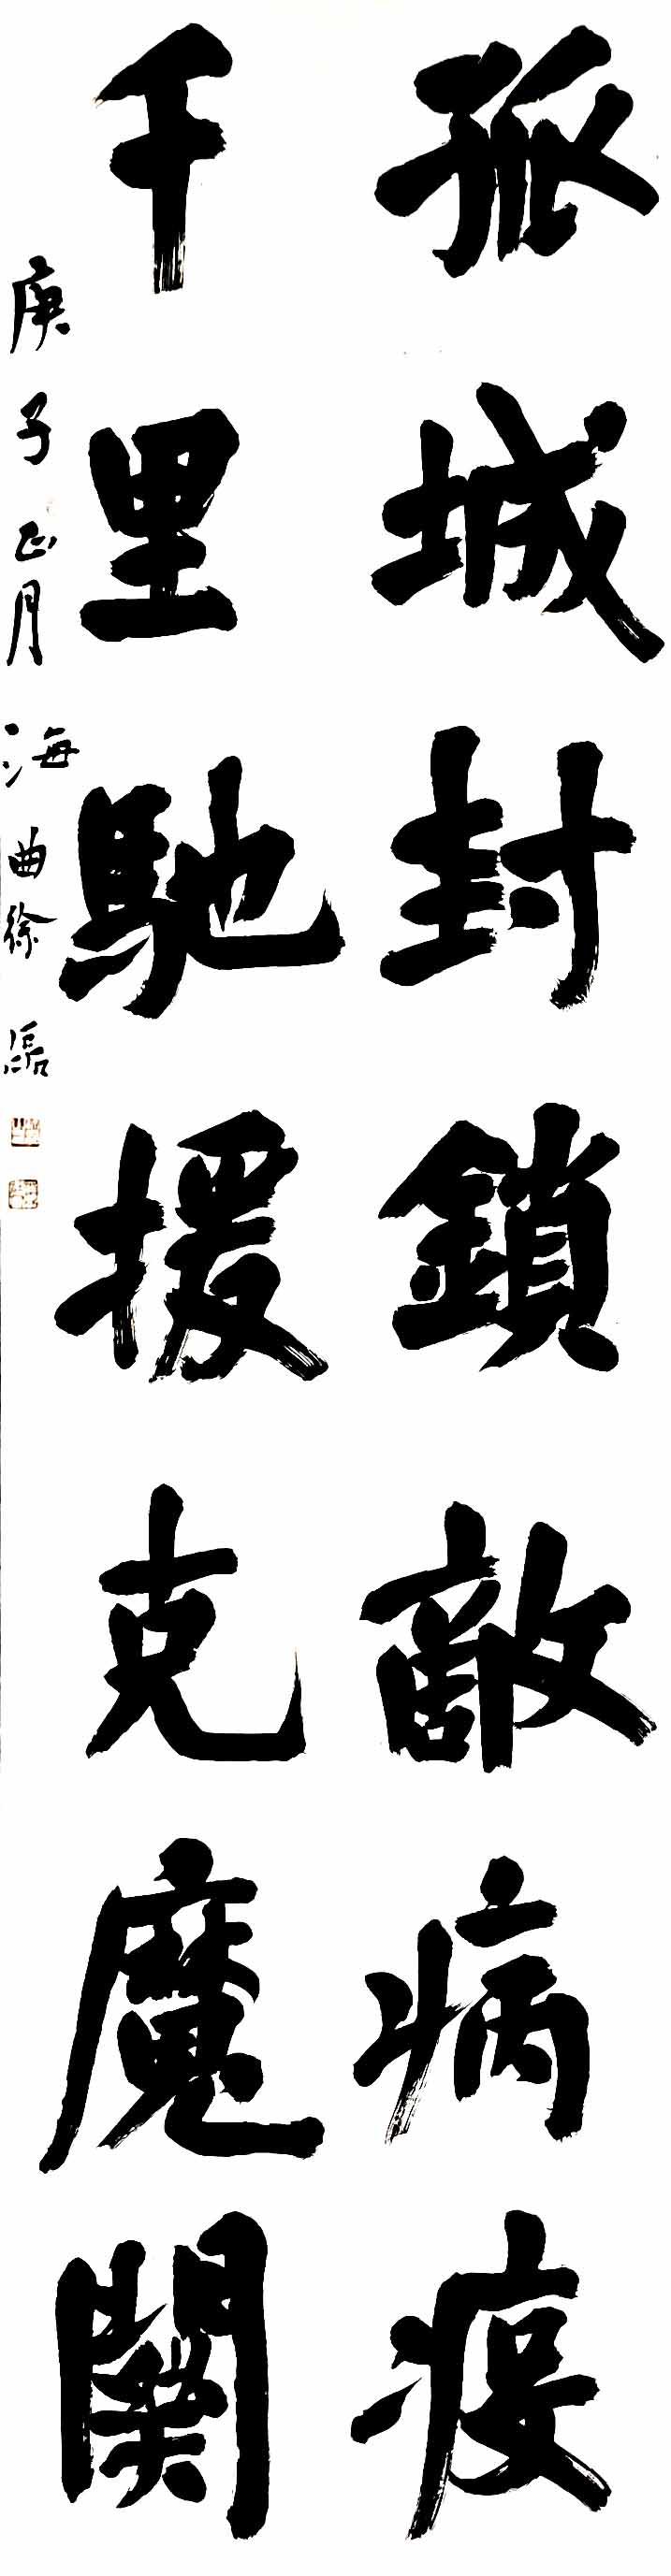 孤城封鎖敵病疫
千里馳援克魔關
庚子正月海曲徐磊